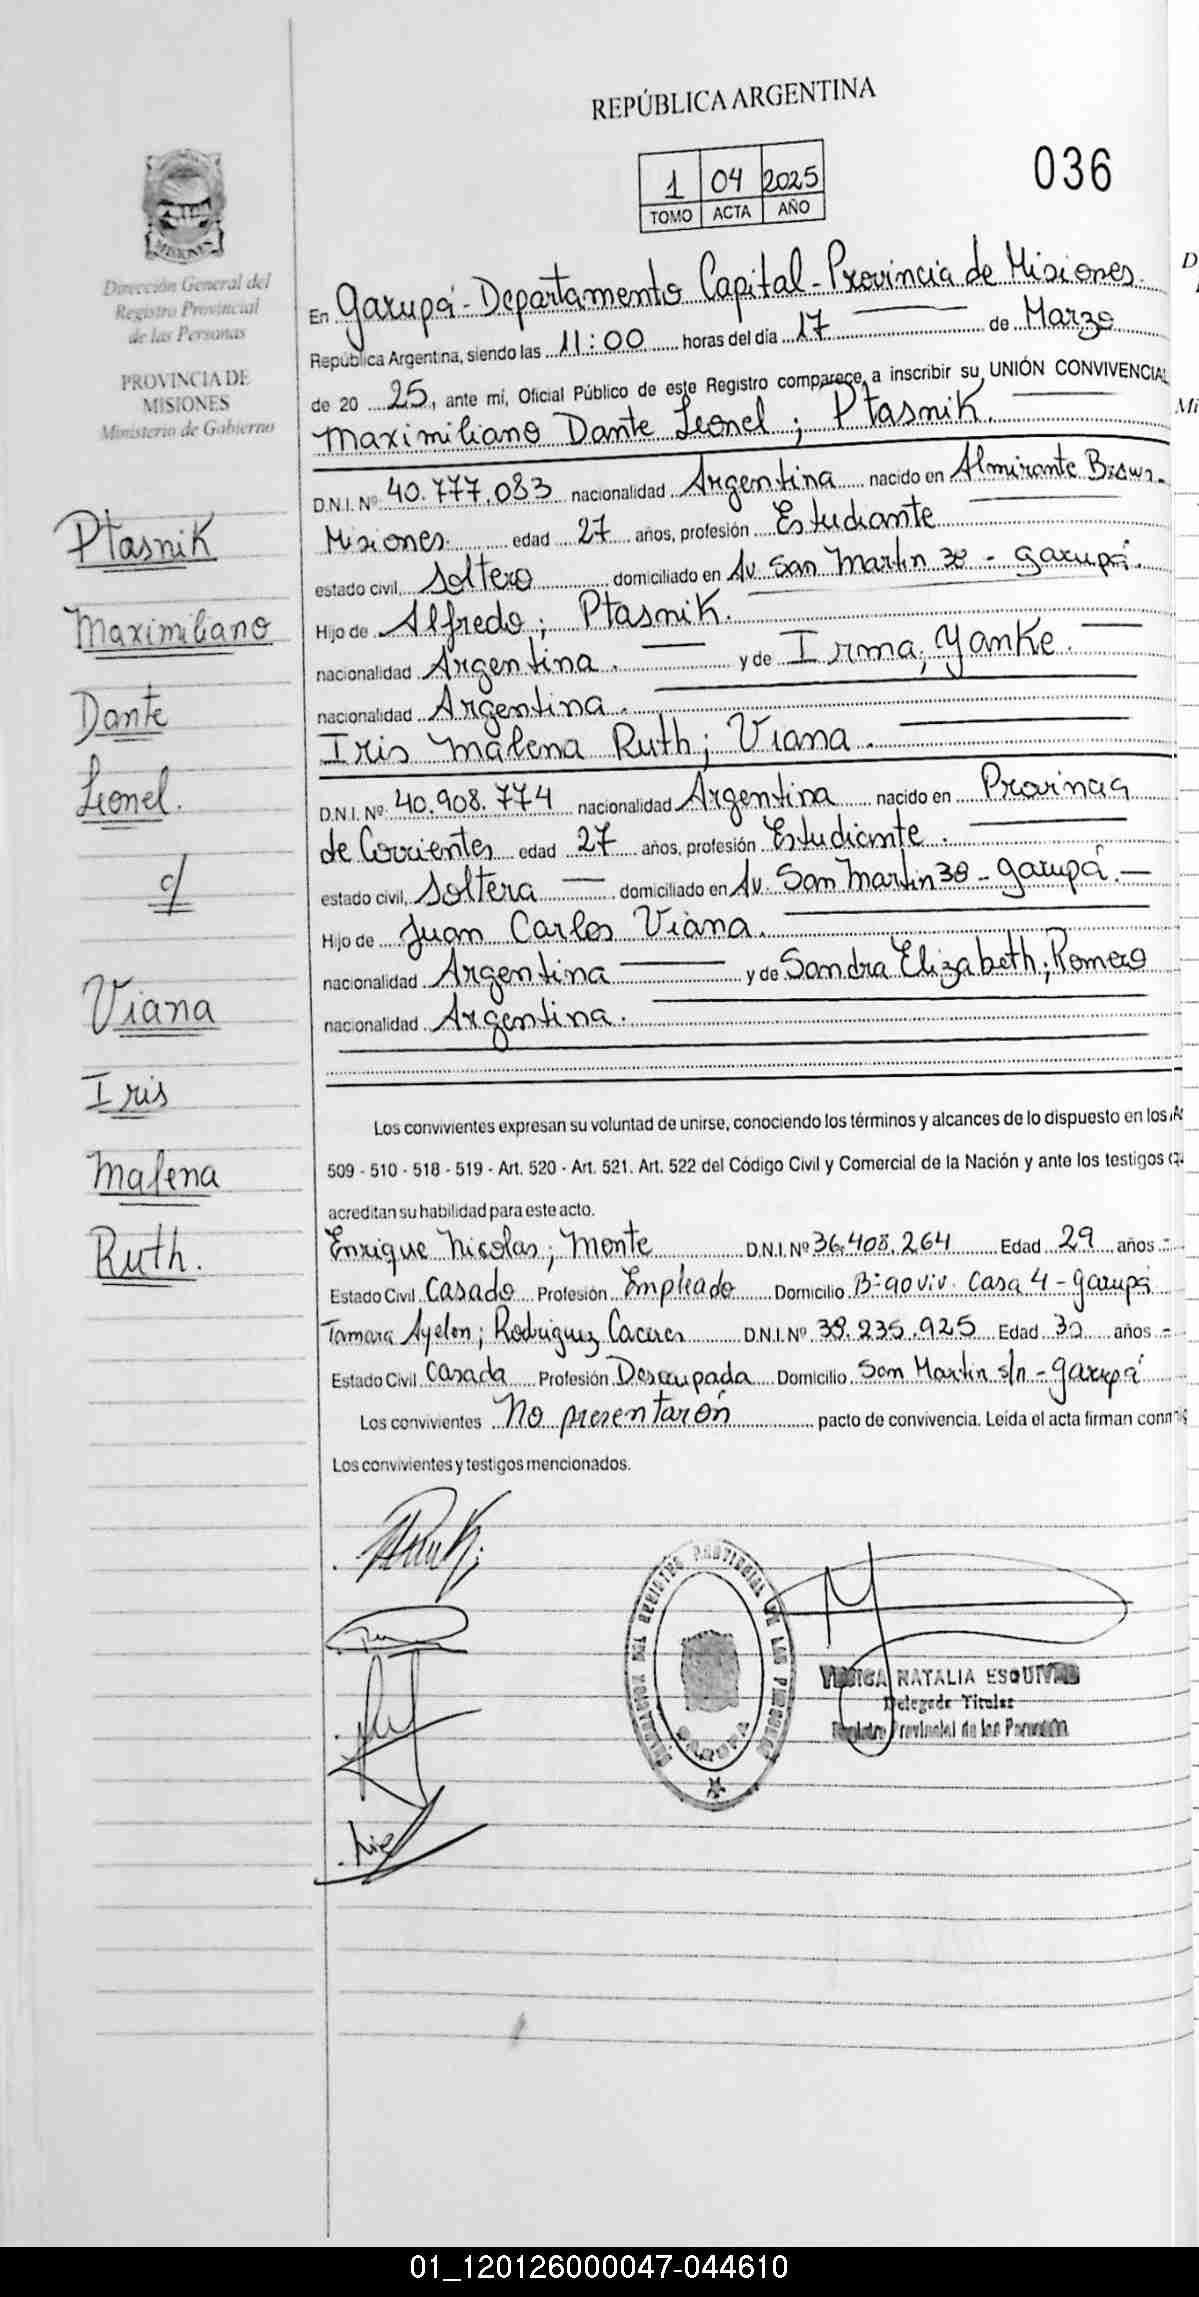 REPÚBLICA ARGENTINA
036
1 04 2025
TOMO ACTA AÑO
MISIONES
Dirección General del
Registro Provincial
de las Personas
PROVINCIA DE
MISIONES
Ministerio de Gobierno
Ptasnik
Maximiliano
Dante
Leonel.
c/
Viana
Iris
Malena
Ruth.
En Garupá - Departamento Capital - Provincia de Misiones.
República Argentina, siendo las 11:00 horas del día 17 de Marzo
de 20 25, ante mí, Oficial Público de este Registro comparece, a inscribir su UNIÓN CONVIVENCIAL
Maximiliano Dante Leonel; Ptasnik.
D.N.I. Nº 40.777.083 nacionalidad Argentina nacido en Almirante Brown.
Misiones. edad 27 años, profesión Estudiante
estado civil, Soltero domiciliado en Av. San Martin 38 - Garupá.
Hijo de Alfredo; Ptasnik.
nacionalidad Argentina. y de Irma, Yanke.
nacionalidad Argentina.
Iris Malena Ruth; Viana.
D.N.I. Nº 40.908.774 nacionalidad Argentina nacido en Provincia
de Corrientes edad 27 años, profesión Estudiante.
estado civil, Soltera domiciliado en Av. San Martin 38 - Garupá.
Hijo de Juan Carlos Viana.
nacionalidad Argentina y de Sandra Elizabeth; Romero
nacionalidad Argentina.
Los convivientes expresan su voluntad de unirse, conociendo los términos y alcances de lo dispuesto en los
509 - 510 - 518 - 519 - Art. 520 - Art. 521. Art. 522 del Código Civil y Comercial de la Nación y ante los testigos
acreditan su habilidad para este acto.
Enrique Nicolas; Monte D.N.I. Nº 36.408.264 Edad 29 años
Estado Civil Casado Profesión Empleado Domicilio Bº 90 viv. Casa 4 - Garupá
Tamara Ayelen; Rodriguez Caceres D.N.I. Nº 38.235.925 Edad 30 años
Estado Civil Casada Profesión Desocupada Domicilio San Martin s/n - Garupá
Los convivientes No presentarón pacto de convivencia. Leída el acta firman
Los convivientes y testigos mencionados.
DELEGACION DEL REGISTRO PROVINCIAL DE LAS PERSONAS
GARUPA
NATALIA ESQUIVEL
Delegada Titular
Registro Provincial de las Personas
01_120126000047-044610